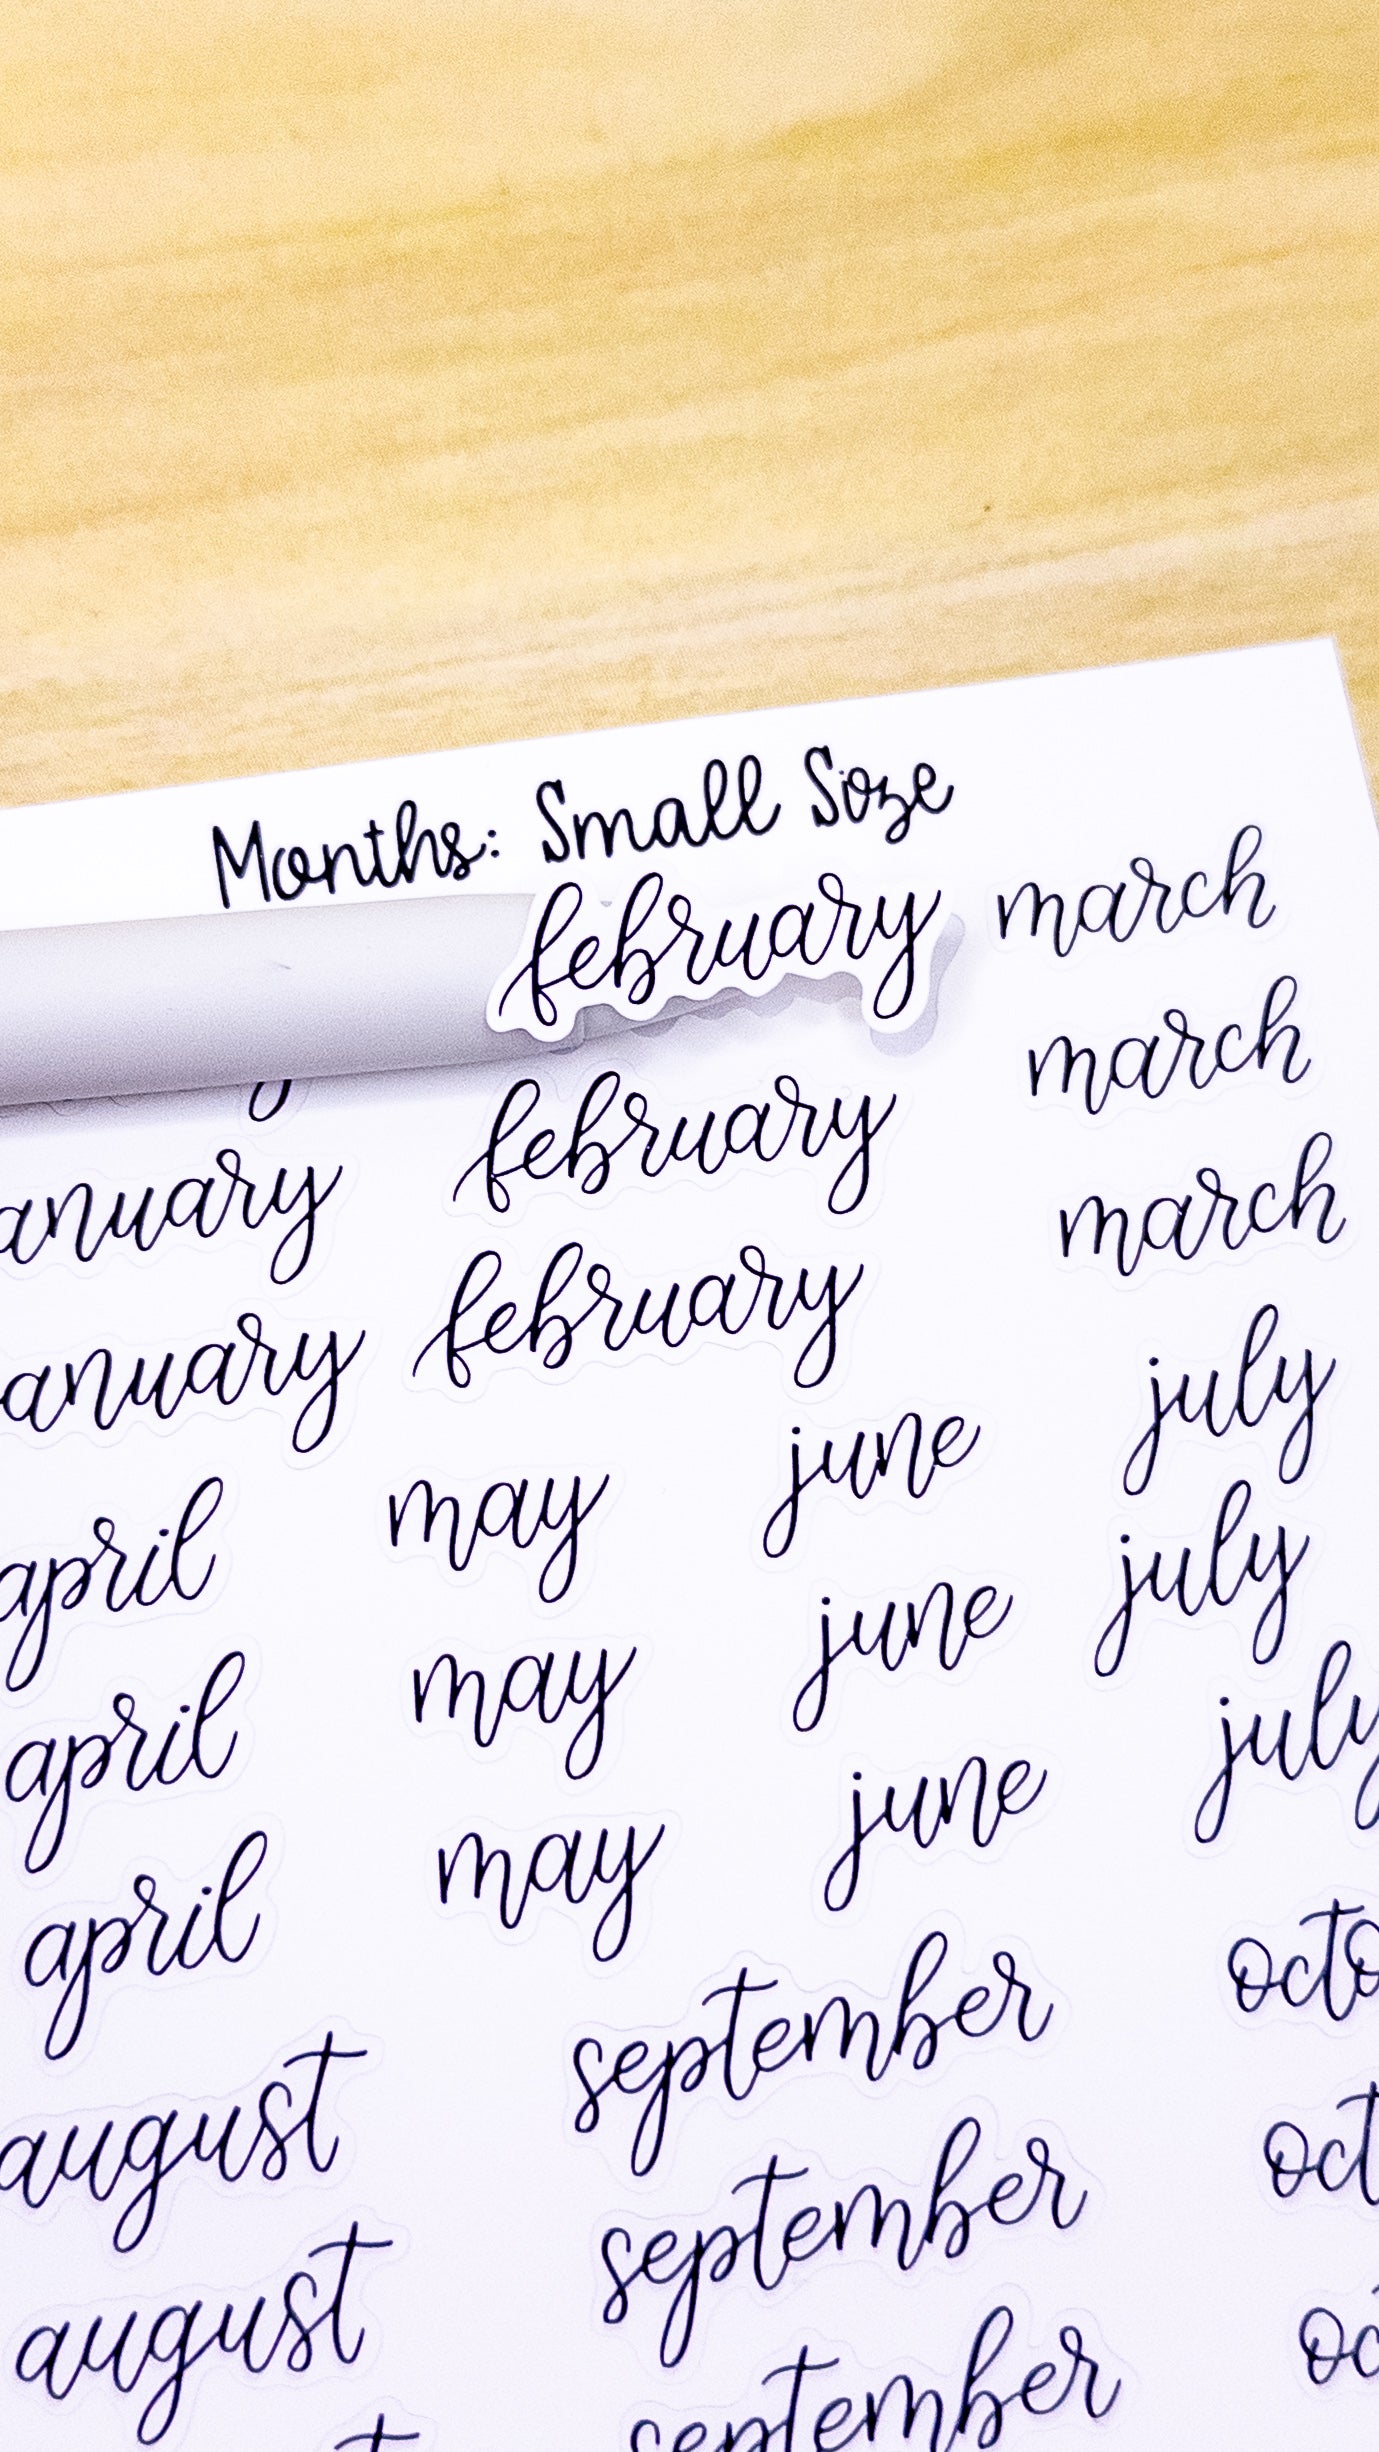 Months: Small Size
february march
february march
anuary february march
anuary
may june july
april may june july
april may june july
april september octo
august september oct
august september oc